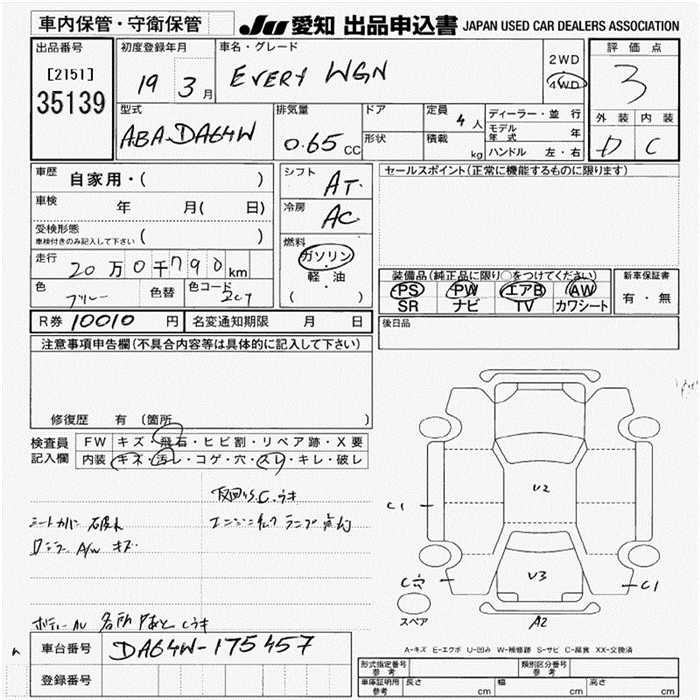 車内保管・守衛保管 JU 愛知 出品申込書 JAPAN USED CAR DEALERS ASSOCIATION
出品番号 初度登録年月 車名・グレード 2WD 評価点
[2151] 19 3月 EVERY WGN 4WD 3
35139 型式 排気量 ドア 定員 4人 ディーラー・並行 外装 内装
ABA-DA64W 0.65CC 形状 積載 kg モデル年式 年 D C
ハンドル 左・右
車歴 自家用・( ) シフト AT セールスポイント(正常に機能するものに限ります)
車検 年 月( 日) 冷房 AC
受検形態 ( )
車検付きのみ記入して下さい
走行 20万0千790km 燃料 ガソリン 装備品(純正品に限り○をつけてください) 新車保証書
色 ブルー 色替 色コード 軽・油 PS PW エアB AW 有・無
( ) SR ナビ TV カワシート
R券 10010円 名変通知期限 月 日 後日品
注意事項申告欄(不具合内容等は具体的に記入して下さい)
修復歴 有(箇所 )
検査員 FW キズ・飛石・ヒビ割・リペア跡・X要
記入欄 内装 キズ・汚レ・コゲ・穴・スレ・キレ・破レ
シートカバー破れ エンジンチェックランプ点灯
A/W キズ
ボディー AU 各所
U2
C1
U3
C1
A2
スペア
A-キズ E-エクボ U-凹み W-補修跡 S-サビ C-腐食 XX-交換済
車台番号 DA64W-175457
登録番号
型式指定番号 参考 類別区分番号 参考
車庫証明用 参考 長さ cm 幅 cm 高さ cm